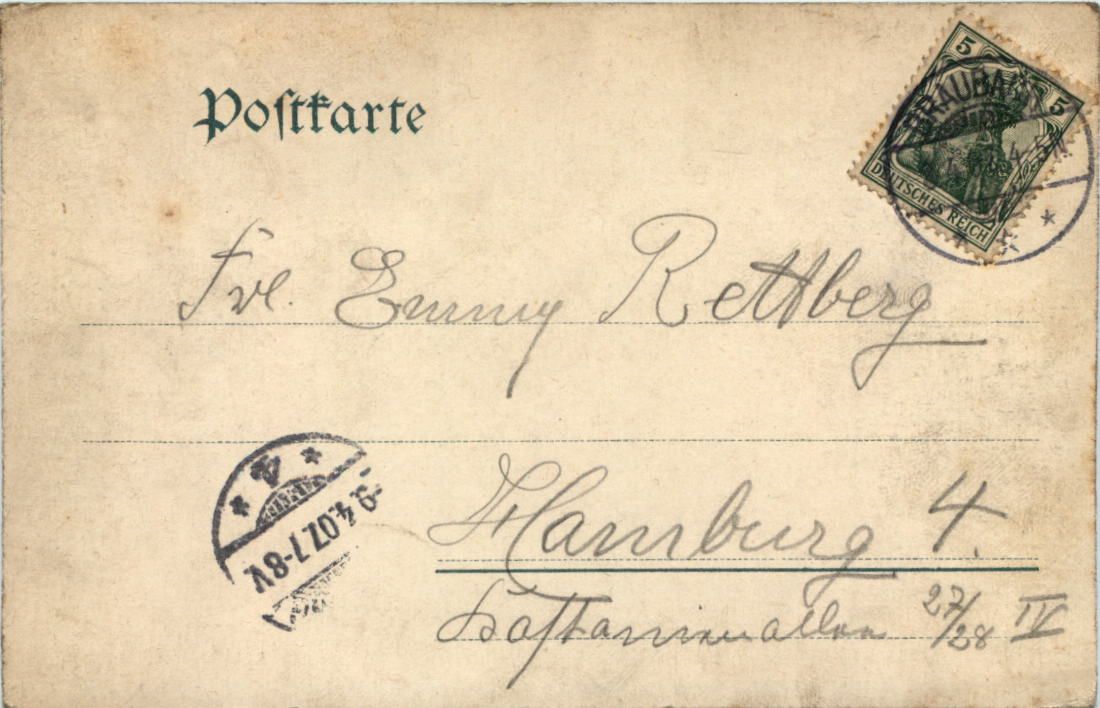 Poſtkarte
5 5
DEUTSCHES REICH
BRAUBACH
Frl. Emmy Rettberg
Hamburg 4.
Kastanienallee 27/28 IV
* 4 *
-9.4.07.7-8V